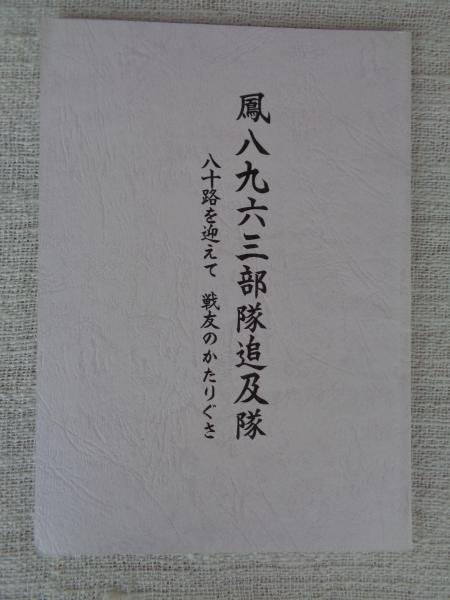 鳳八九六三部隊追及隊
八十路を迎えて 戦友のかたりぐさ